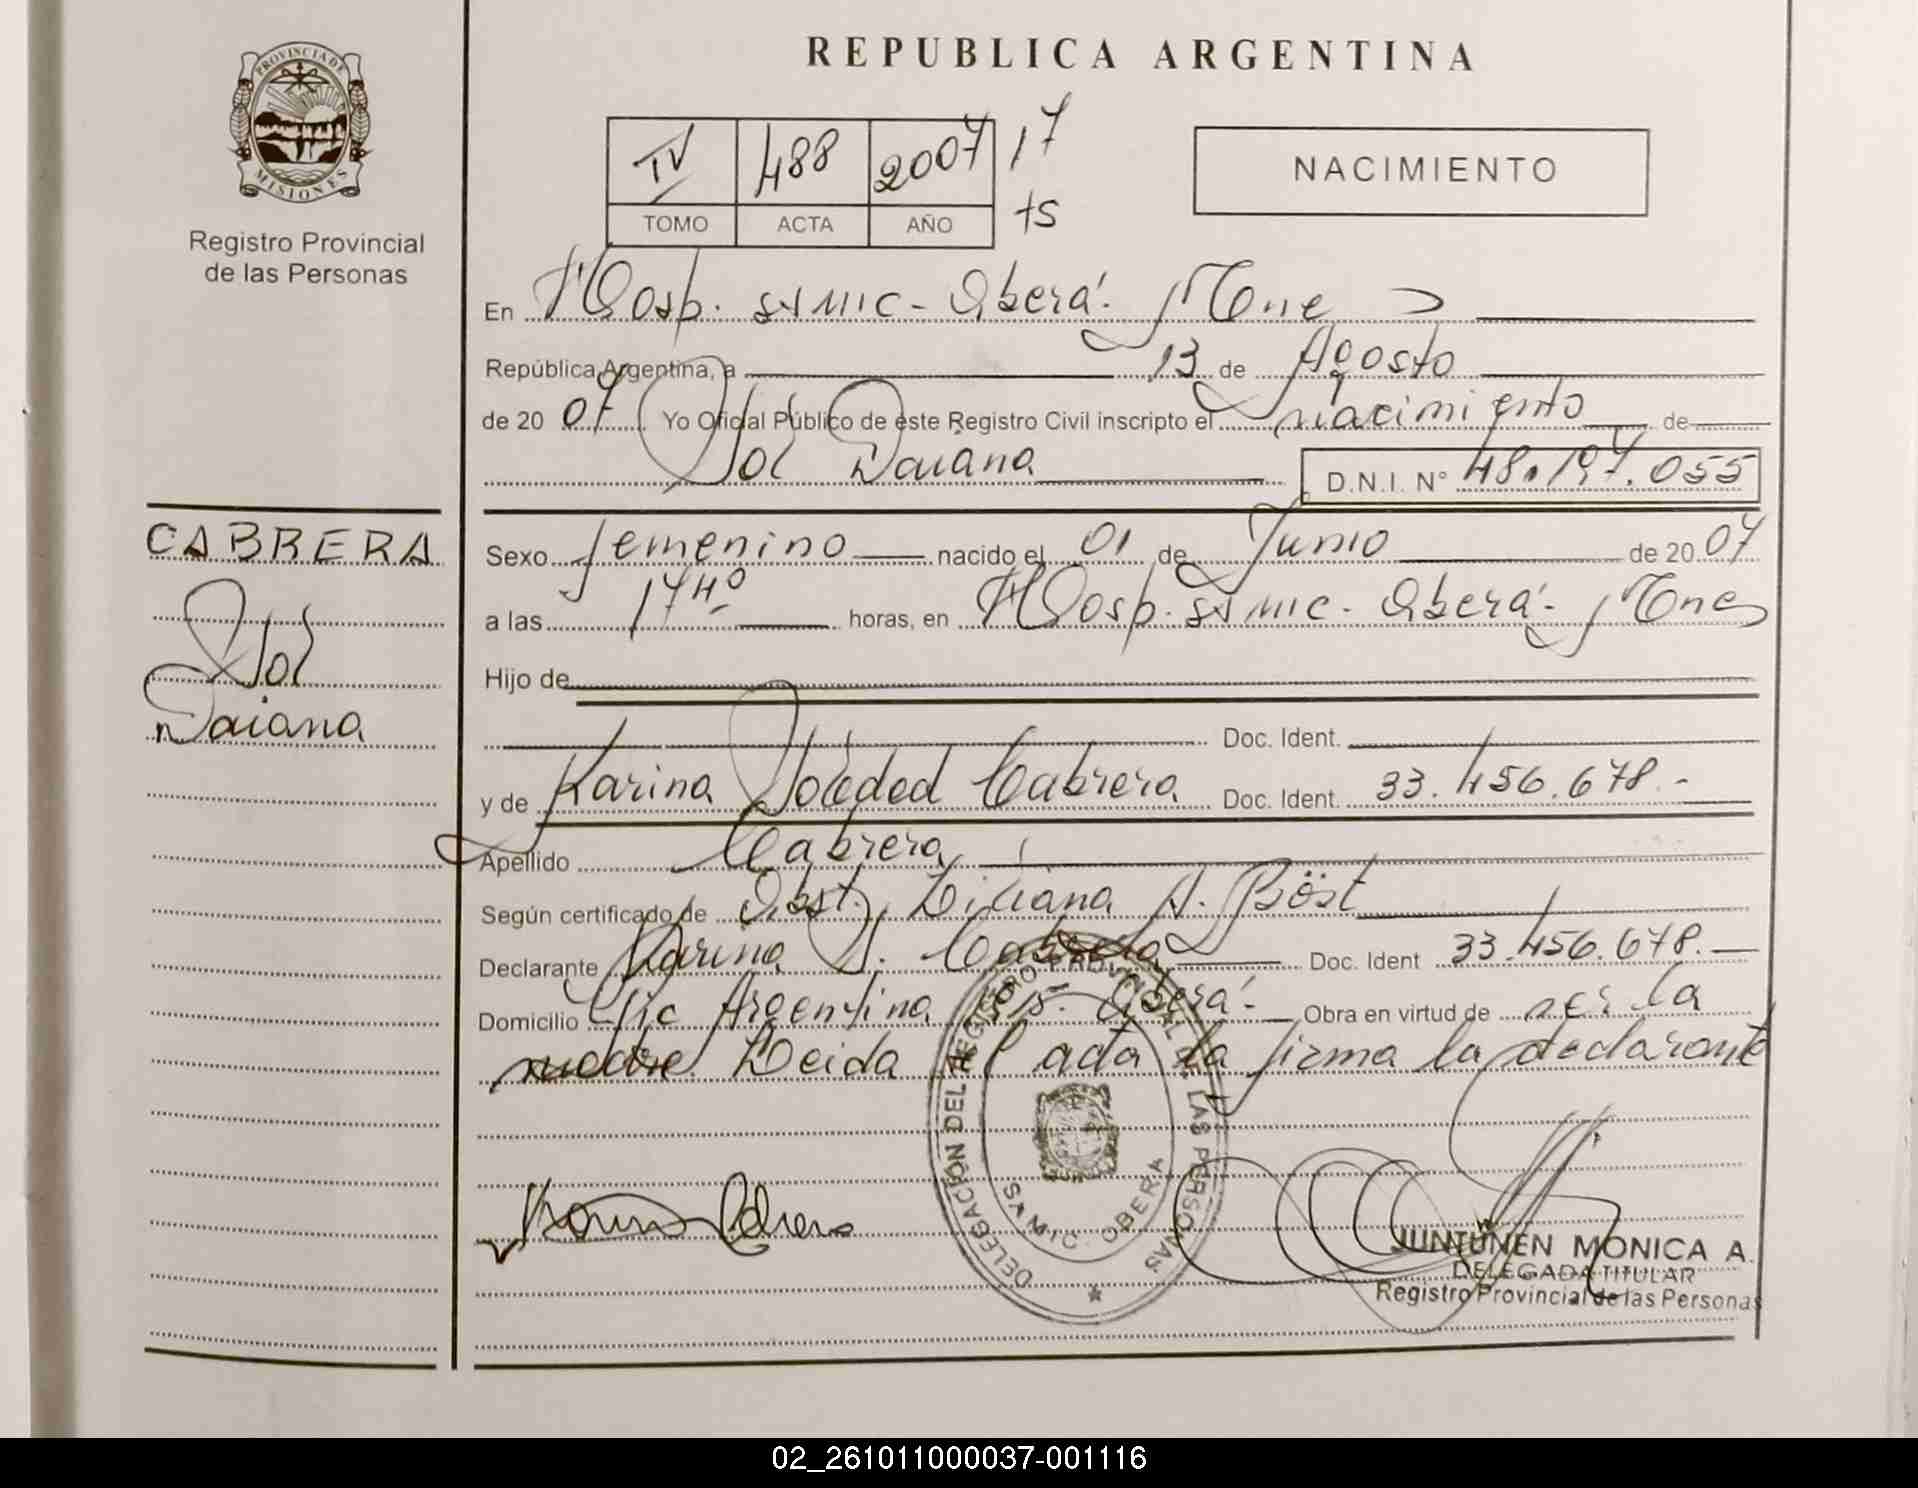 PROVINCIA DE
MISIONES
Registro Provincial
de las Personas
REPUBLICA ARGENTINA
IV 488 2007 17
TOMO ACTA AÑO ts
NACIMIENTO
En Hosp. SAMIC - Oberá - Mnes
República Argentina, a 13 de Agosto
de 20 07 Yo Oficial Público de este Registro Civil inscripto el nacimiento de
Sol Daiana D.N.I. N° 48.197.055
CABRERA
Sol
Daiana
Sexo femenino nacido el 01 de Junio de 20 07
a las 17 Hº horas, en Hosp. SAMIC - Oberá - Mnes
Hijo de
Doc. Ident.
y de Karina Soledad Cabrera Doc. Ident. 33.456.678.-
Apellido Cabrera
Según certificado de Obst. Liliana A. Böst
Declarante Karina S. Cabrera Doc. Ident 33.456.678.
Domicilio Rca Argentina Oberá - Obra en virtud de ser la
madre. Leida el acta la firma la declarante
DELEGACIÓN DEL REGISTRO PROVINCIAL DE LAS PERSONAS
SAMIC OBERA
JUNTUNEN MONICA A.
DELEGADA TITULAR
Registro Provincial de las Personas
02_261011000037-001116